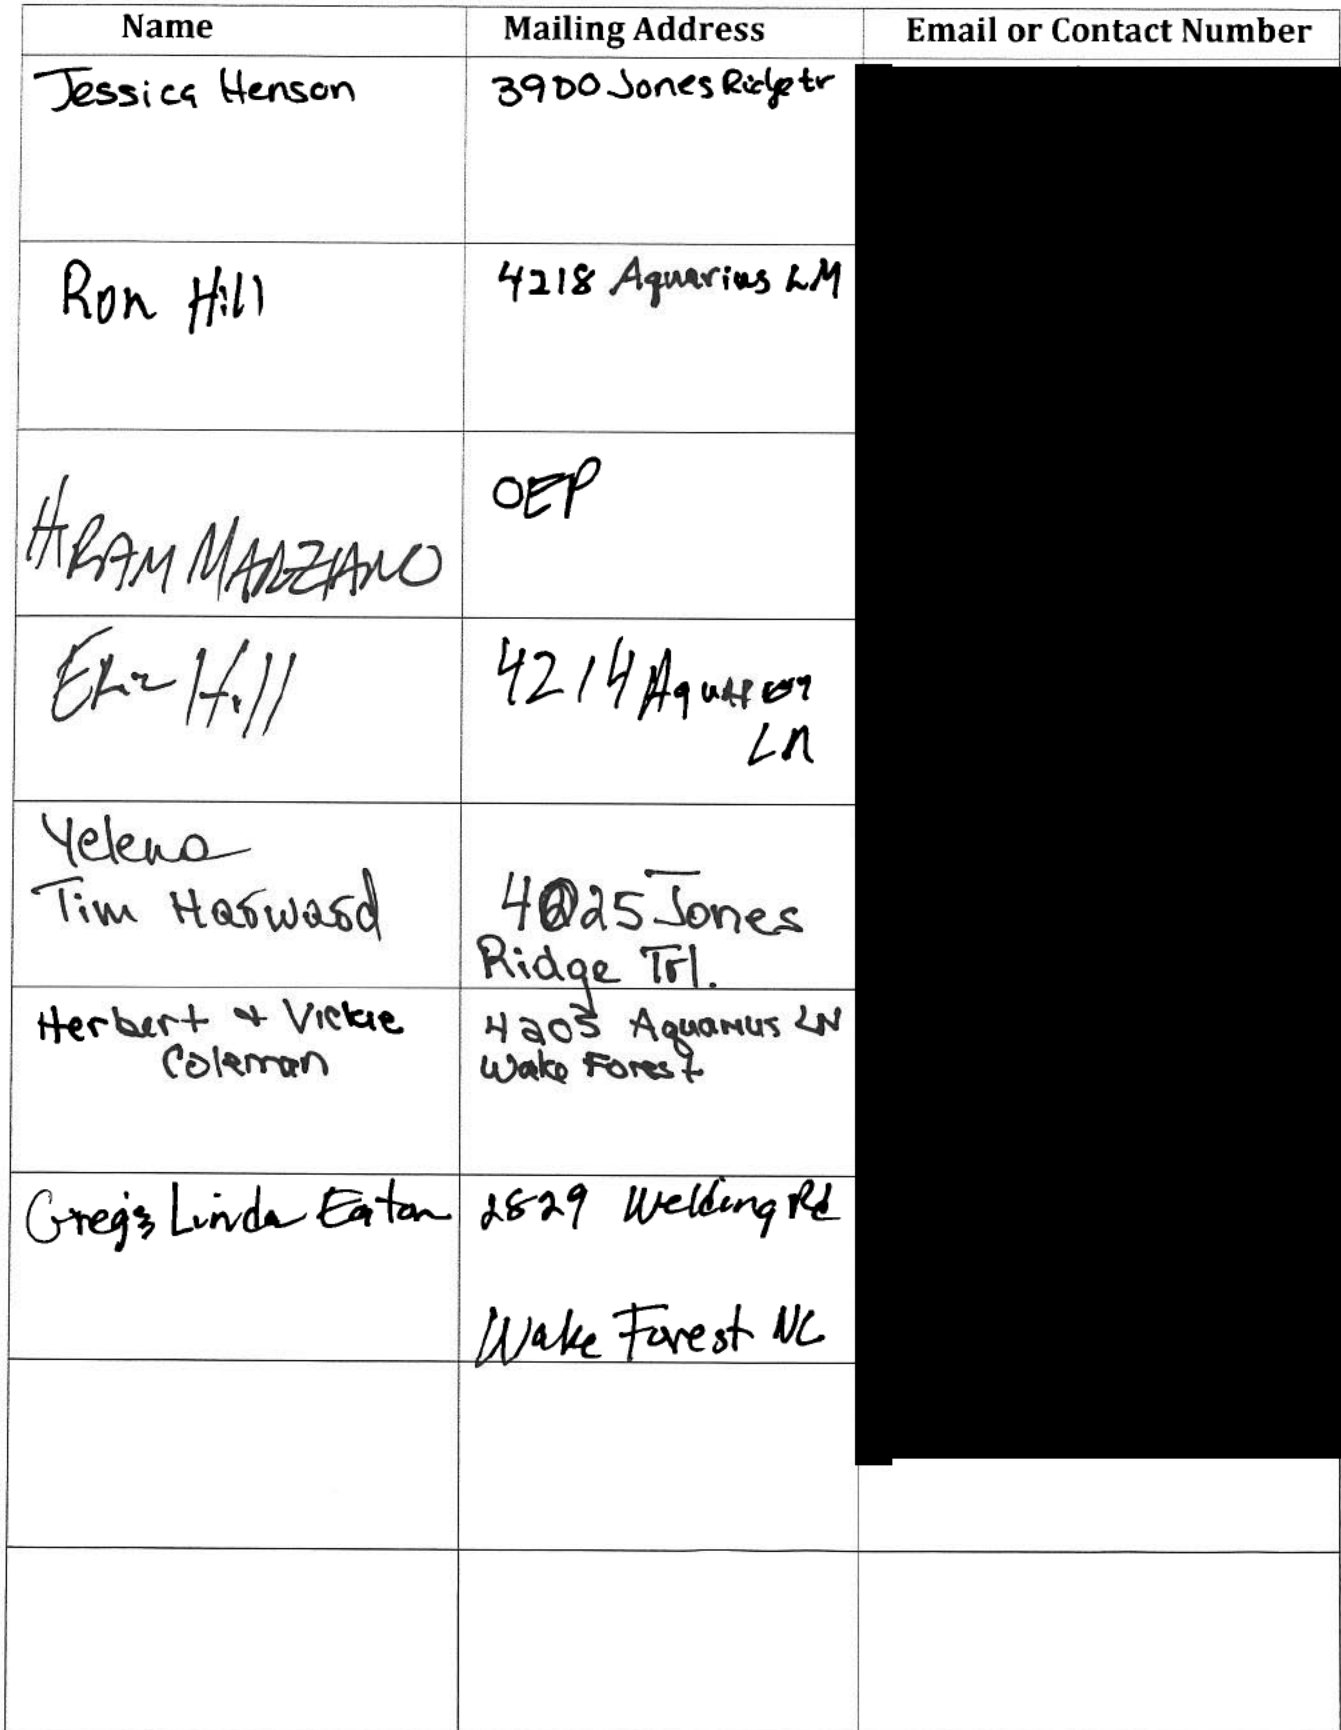 Name Mailing Address Email or Contact Number
Jessica Henson 3900 Jones Ridge tr
Ron Hill 4218 Aquarius LN
HIRAM MARZIANO OEP
Eric Hill 4214 Aquarius
LN
Yelena
Tim Harward 4025 Jones
Ridge Trl.
Herbert & Vickie 4205 Aquarius LN
Coleman Wake Forest
Greg & Linda Eaton 2829 Welding Rd
Wake Forest NC